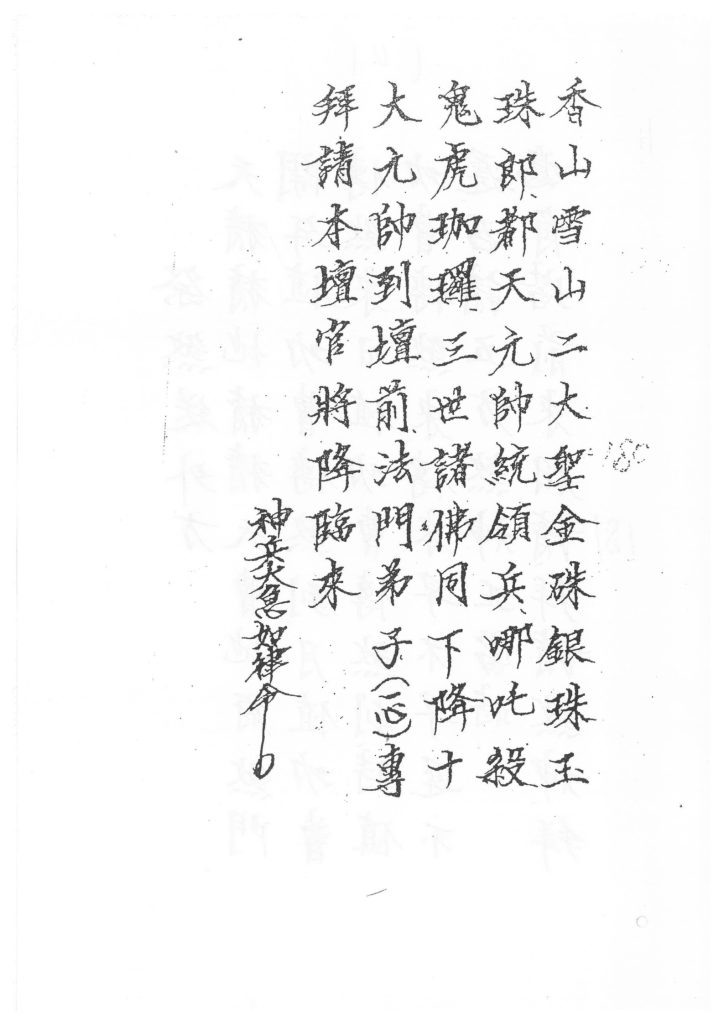 香山雪山二大聖金硃銀珠玉
珠郎都天元帥統領兵哪吒殺
鬼虎珈囉三世諸佛同下降十
大元帥到壇前法門弟子(一心)專
拜請本壇官將降臨來
神兵火急如律令
180